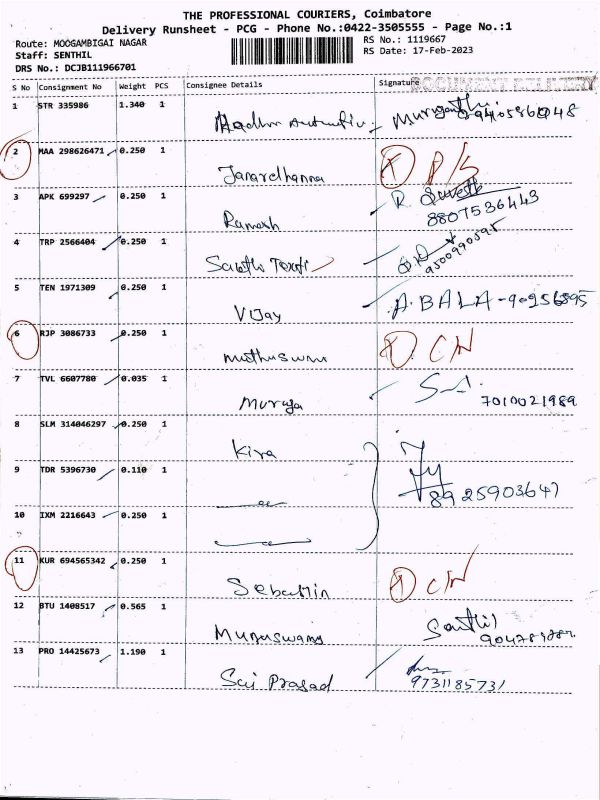 THE PROFESSIONAL COURIERS, Coimbatore
Delivery Runsheet - PCG - Phone No.:0422-3505555 - Page No.:1
Route: MOOGAMBIGAI NAGAR
Staff: SENTHIL
DRS No.: DCJB111966701
RS No.: 1119667
RS Date: 17-Feb-2023
S No Consignment No Weight PCS Consignee Details Signature
DOCUMENT DELIVERY
1 STR 335986 1.340 1
2 MAA 298626471 0.250 1 Janardhanna
3 APK 699297 0.250 1 Ramesh R 8807536443
4 TRP 2566404 0.250 1 Sakthi 9500990595
5 TEN 1971309 0.250 1 Vijay A. BALA - 90956895
6 RJP 3086733 0.250 1 muthuswami C/N
7 TVL 6607780 0.035 1 Muruga 7010021989
8 SLM 314046297 0.250 1 Kira
9 TDR 5396730 0.110 1 8925903647
10 IXM 2216643 0.250 1
11 KUR 694565342 0.250 1 C/N
12 BTU 1408517 0.565 1 Santhil
13 PRO 14425673 1.190 1 Sai Prasad 9731185731